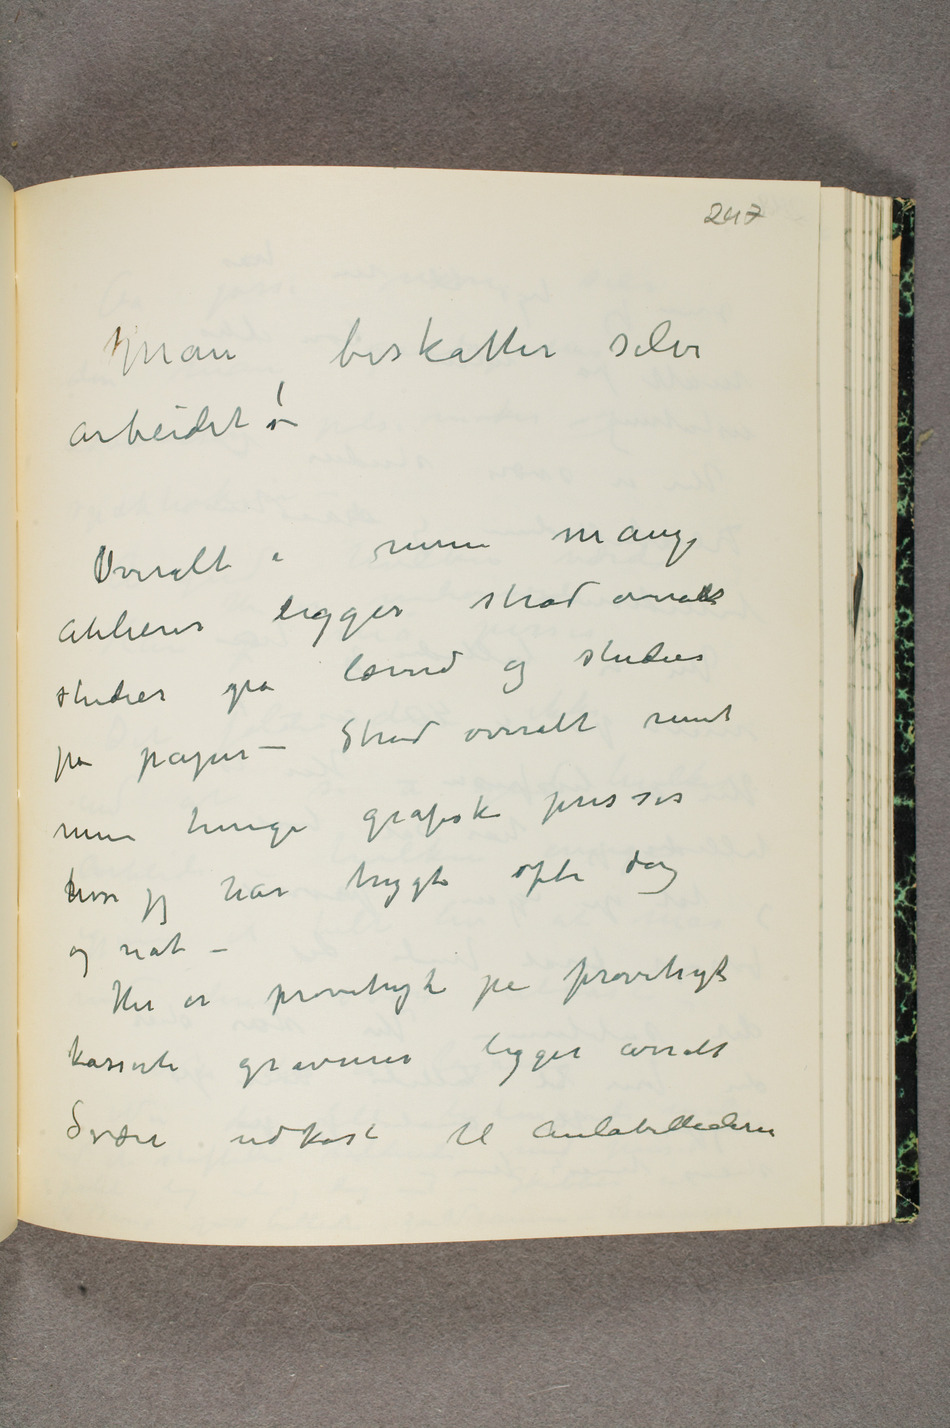 247
Man beskatter selve
arbeidet! –
Overalt i mine mange
Atelierer ligger strød overalt
studier på lærred og studier
på papir – Strød overalt rundt
mine tunge grafiske presser
hvor jeg har trygt ofte dag
og nat –
Her er prøvetrygk på prøvetrygk
kasserte gravurer ligger overalt
Svære udkast til Aulabillederne